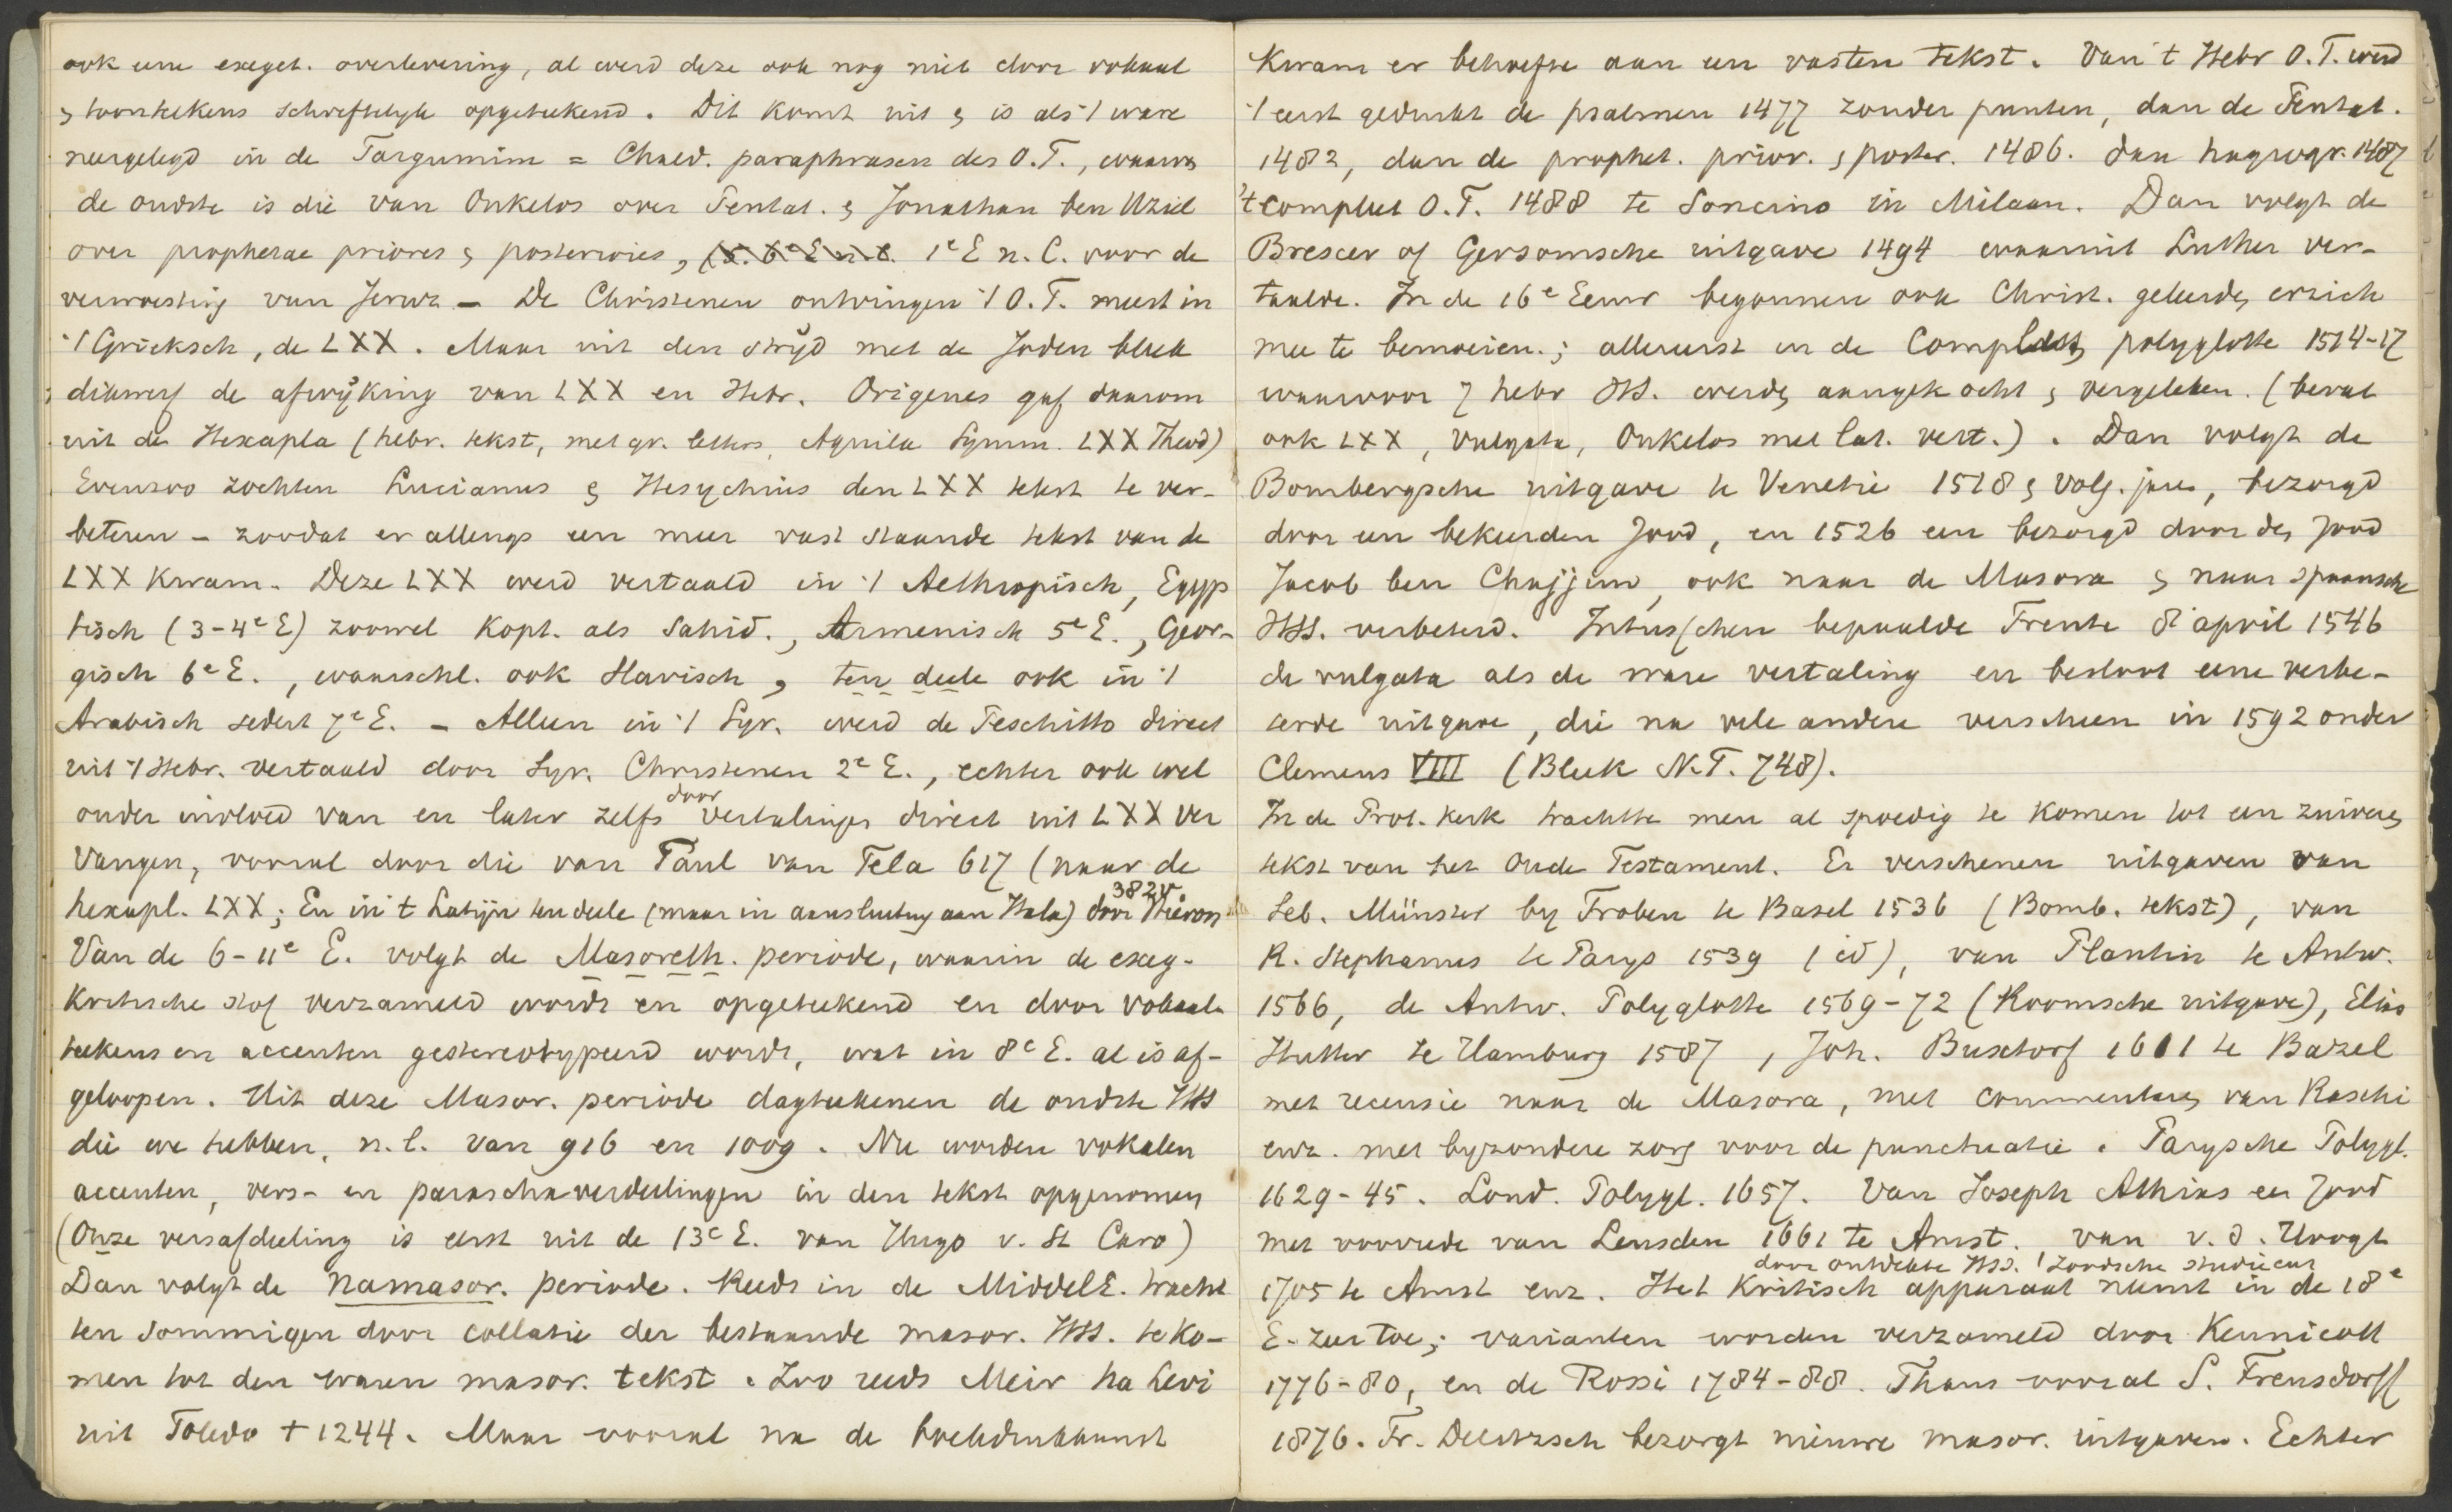 ook eene exeget. overlevering, al werd deze ook nog niet door vokaal
& toonteekens schriftelijk opgeteekend. Dit komt uit & is als 't ware
neergelegd in de Targumim = Chald. paraphrasen des O.T., waarvan
de oudste is die van Onkelos over Pentat. & Jonathan ben Uziel
over prophetae priores & posteriores, 1e E n. C. voor de
verwoesting van Jeruz. – De Christenen ontvingen 't O.T. meest in
't Grieksch, de LXX. Maar uit den strijd met de Joden bleek
dikwerf de afwijking van LXX en Hebr. Origenes gaf daarom
uit de Hexapla (hebr. tekst, met gr. letters, Aquila Symm. LXX Theod)
Evenzoo zochten Lucianus & Hesychius den LXX tekst te ver-
beteren – zoodat er allengs een meer vast staande tekst van de
LXX kwam. Deze LXX werd vertaald in 't Aethiopisch, Egyp
tisch (3-4e E) zoowel Kopt. als Sahid., Armenisch 5e E., Geor-
gisch 6e E., waarschl. ook Slavisch, ten deele ook in 't
Arabisch sedert 7e E. – Alleen in 't Syr. werd de Peschitto direct
uit 't Hebr. vertaald door Syr. Christenen 2e E., echter ook wel
onder invloed van en later zelfs door vertalingen direct uit LXX ver
vangen, vooral door die van Paul van Tela 617 (naar de
hexapl. LXX; En in 't Latijn ten deele (maar in aansluiting aan Itala) door Hieron 382v
Van de 6-11e E. volgt de Masoreth. periode, waarin de exeg-
kritische stof verzameld wordt en opgeteekend en door vokaal-
teekens en accenten gestereotypeerd wordt, wat in 8e E. al is af-
geloopen. Uit deze Masor. periode dagteekenen de oudste HSS
die we hebben, n.l. van 916 en 1009. Nu worden vokalen
accenten, vers- en paraschaverdeelingen in den tekst opgenomen
(Onze versafdeeling is eerst uit de 13e E. van Hugo v. St Caro)
Dan volgt de namasor. periode. Reeds in de MiddelE. tracht
ten sommigen door collatie der bestaande masor. HSS. te ko-
men tot den waren masor. tekst. Zoo reeds Meir ha Levi
uit Toledo † 1244. Maar vooral na de boekdrukkunst
Kwam er behoefte aan een vasten tekst. Van 't Hebr O.T. werd
't eerst gedrukt de psalmen 1477 zonder punten, dan de Pentat.
1482, dan de prophet. prior. & poster. 1486. dan hagiogr. 1487
't compleet O.T. 1488 te Soncino in Milaan. Dan volgt de
Brescer of Gersomsche uitgave 1494 waaruit Luther ver-
taalde. In de 16e Eeuw begonnen ook Christ. geleerden er zich
mee te bemoeien.; allereerst in de Complut. polyglotte 1514-17
waarvoor 7 hebr HSS. werden aangekocht & vergeleken. (bevat
ook LXX, Vulgata, Onkelos met lat. vert.). Dan volgt de
Bombergsche uitgave te Venetie 1518 & volg. jaren, bezorgd
door een bekeerden Jood, en 1526 een bezorgd door den Jood
Jacob ben Chajjim, ook naar de Masora & naar spaansche
HSS. verbeterd. Intusschen bepaalde Trente 8 april 1546
de vulgata als de ware vertaling en besloot eene verbe-
terde uitgave, die na vele andere verscheen in 1592 onder
Clemens VIII (Bleek N.T. 748).
In de Prot. kerk trachtte men al spoedig te komen tot een zuiveren
tekst van het Oude Testament. Er verschenen uitgaven van
Seb. Münster by Froben te Basel 1536 (Bomb. tekst), van
R. Stephanus te Parys 1539 (id), van Plantin te Antw.
1566, de Antw. Polyglotte 1569-72 (Roomsche uitgave), Elias
Hutter te Hamburg 1587, Joh. Buxtorf 1611 te Bazel
met recensie naar de Masora, met commentaren van Raschi
enz. met byzondere zorg voor de punctuatie. Parysche Polygl.
1629-45. Lond. Polygl. 1657. Van Joseph Athias een Jood
met voorrede van Leusden 1661 te Amst. van v. d. Hoogt
1705 te Amst enz. Het Kritisch apparaat neemt in de 18e
door ontdekte HSS. & Joodsche studieën
E. zeer toe; varianten worden verzameld door Kennicott
1776-80, en de Rossi 1784-88. Thans vooral S. Frensdorff
1876. Fr. Delitzsch bezorgt nieuwe masor. uitgaven. Echter